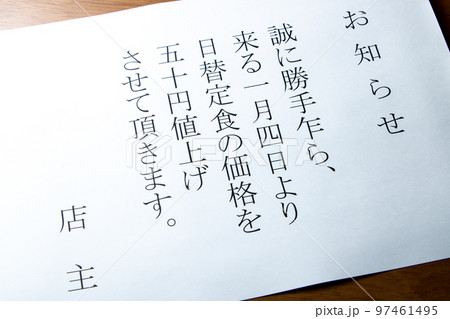 お知らせ
誠に勝手乍ら、
来る一月四日より
日替定食の価格を
五十円値上げ
させて頂きます。
店主
PIXTA
97461495